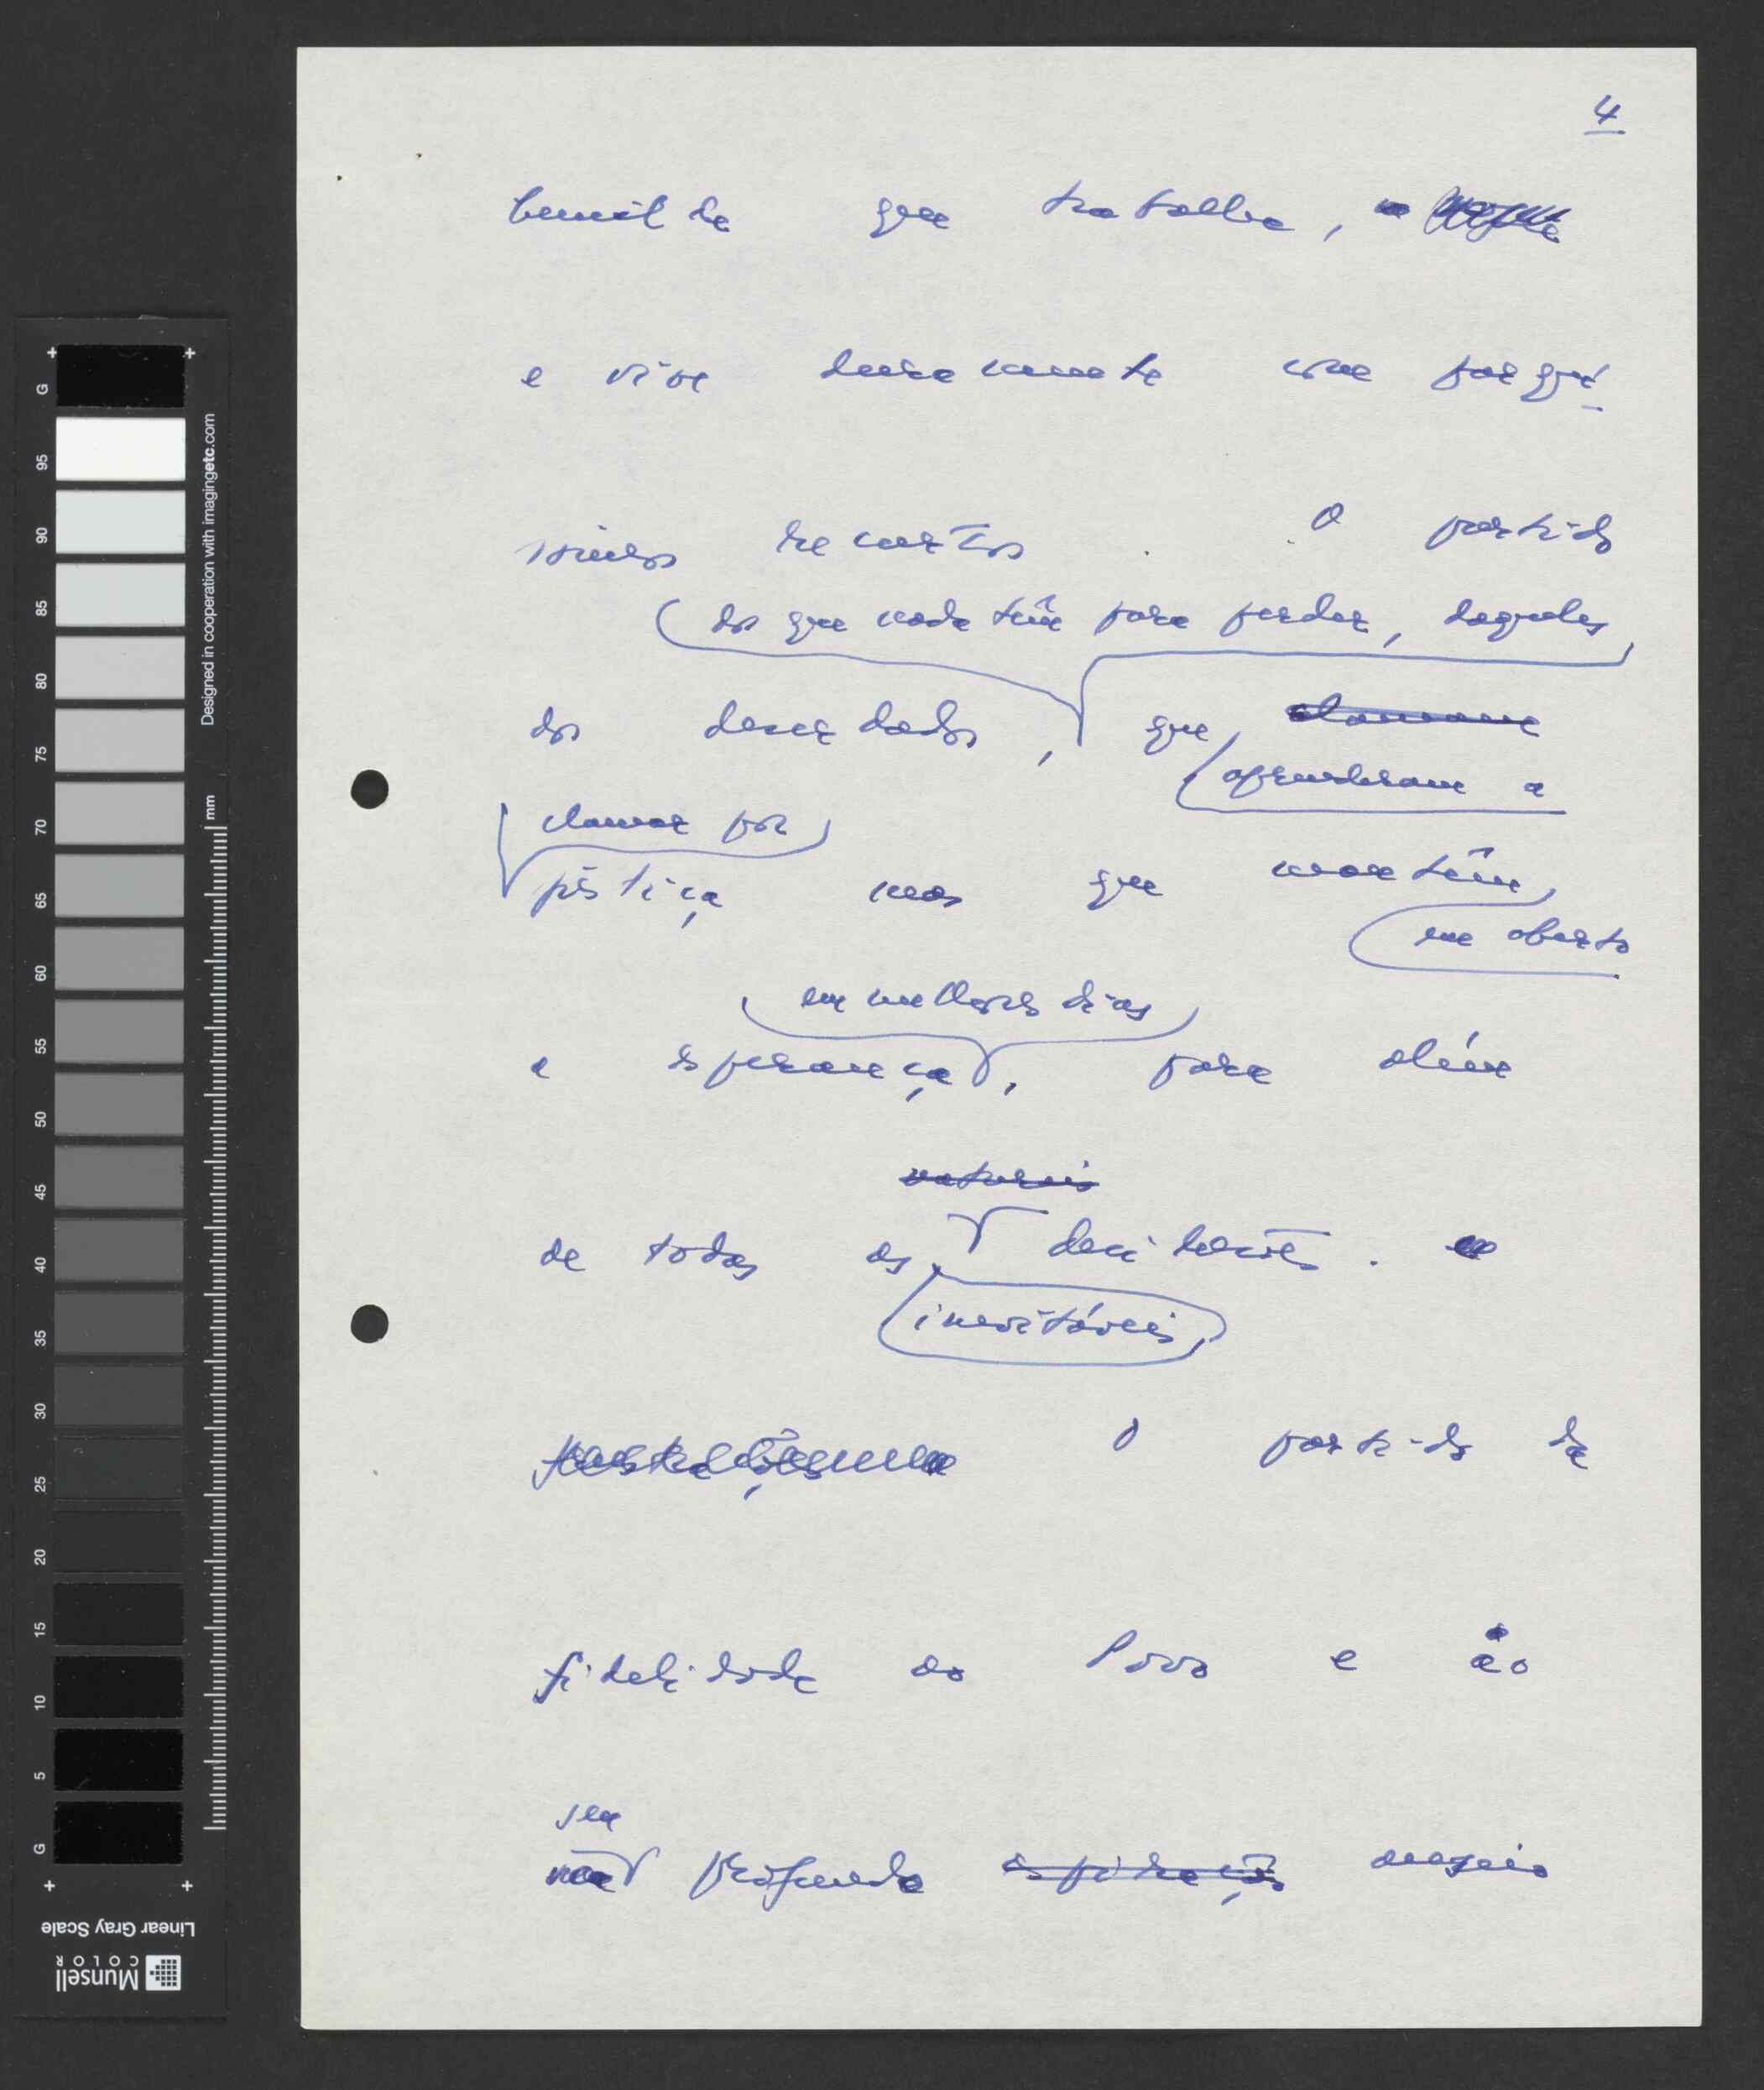 4
humilde que trabalha,
e vive duramente com parquí-
ssimos recursos. O partido
dos que nada têm para perder, daqueles
dos deserdados, que clamam
aprenderam a
clamar por
justiça mas que mantêm
em aberto
em melhores dias
a esperança, para além
naturais
de todas as desilusões.
inevitáveis
O partido da
fidelidade ao Povo e ao
seu
profundo aspirações anseio
G 95 90 85 80 75 70 65 60 55 50 45 40 35 30 25 20 15 10 5 G
mm
Designed in cooperation with imagingetc.com
Linear Gray Scale
Munsell
COLOR